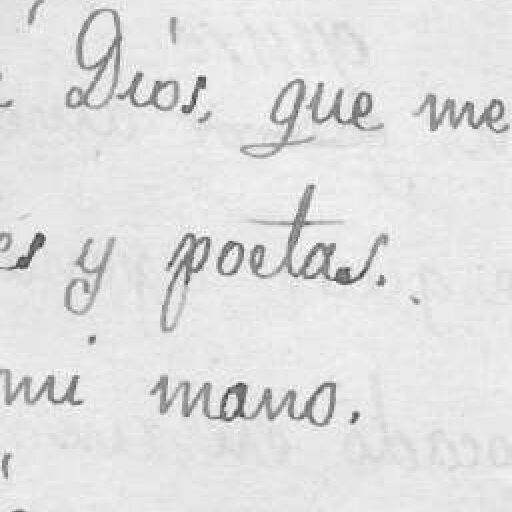 Dios, que me
y poetas.
mi mano.